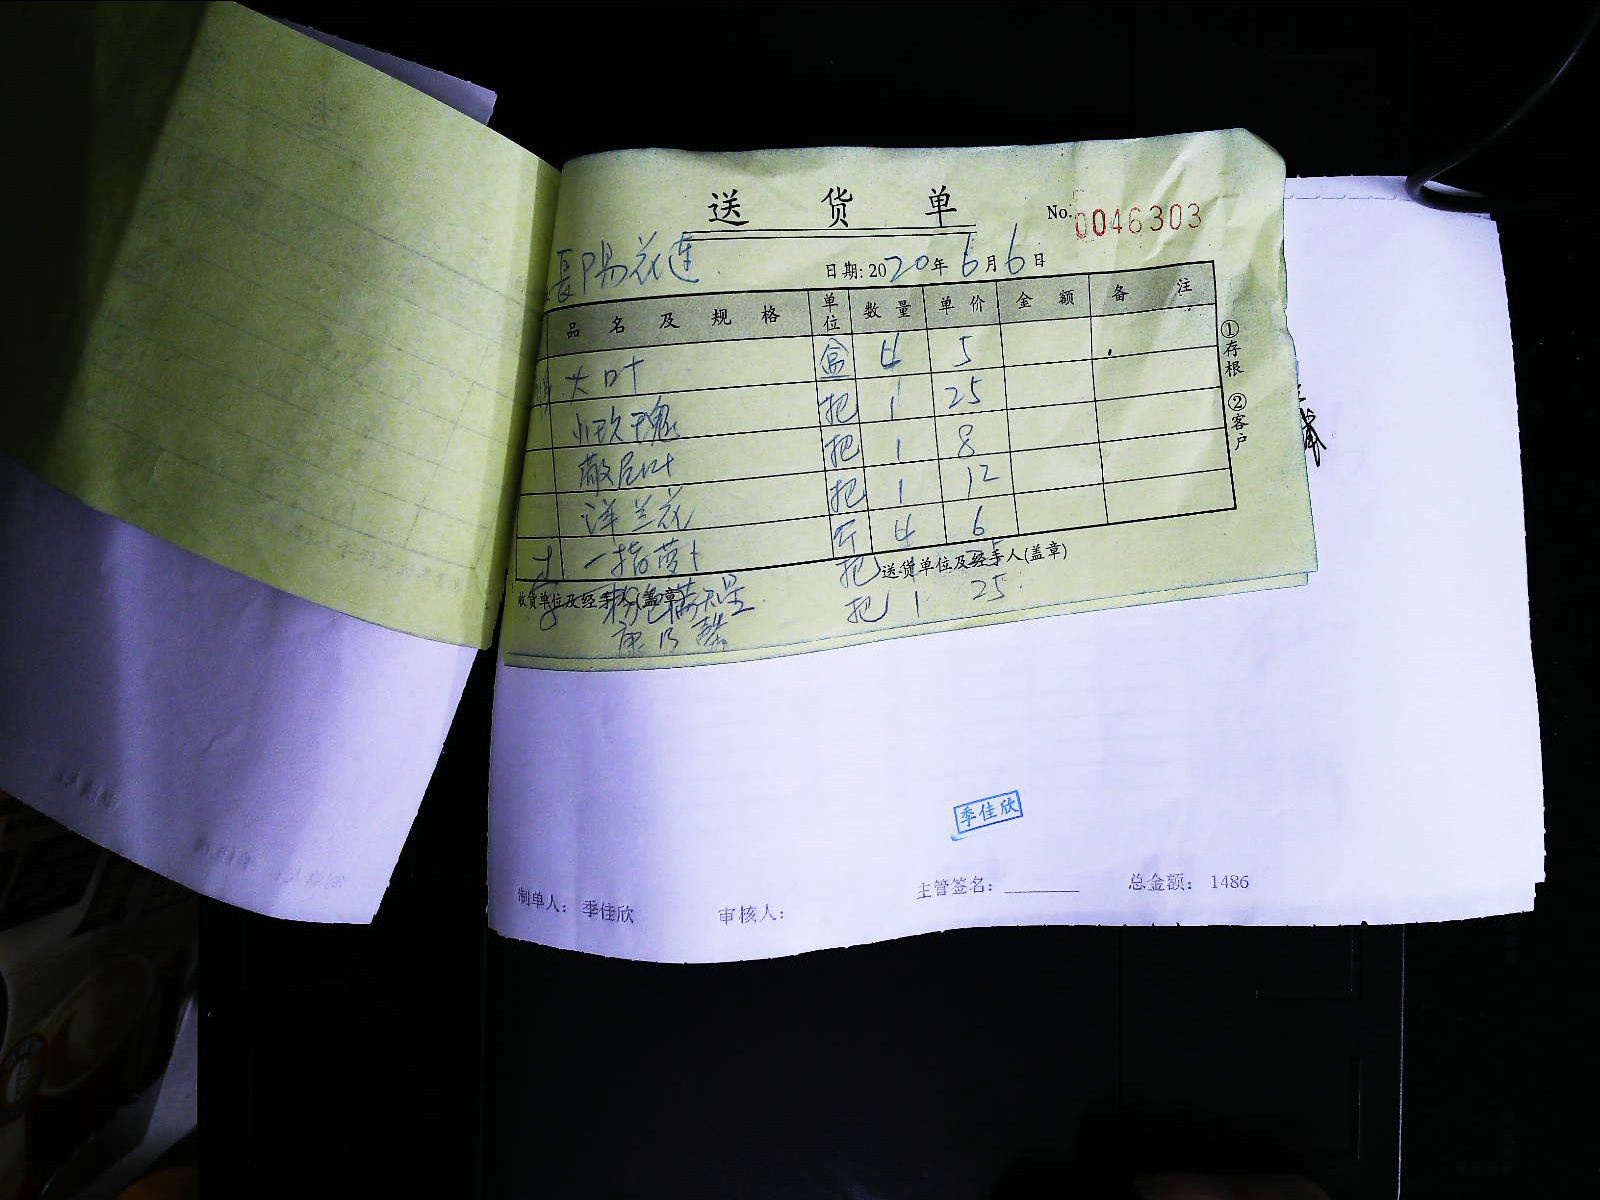 送货单
No. 0046303
長陽花莲
日期: 2020年6月6日
品名及规格 单位 数量 单价 金额 备注
大叶 盒 4 5
小玫瑰 把 1 25
散尾叶 把 1 8
洋兰花 把 1 12
一指萝卜 斤 4 6
把
收货单位及经手人(盖章) 送货单位及经手人(盖章)
康乃馨 把 1 25
①存根 ②客户
季佳欣
制单人: 季佳欣 审核人: 主管签名: 总金额: 1486